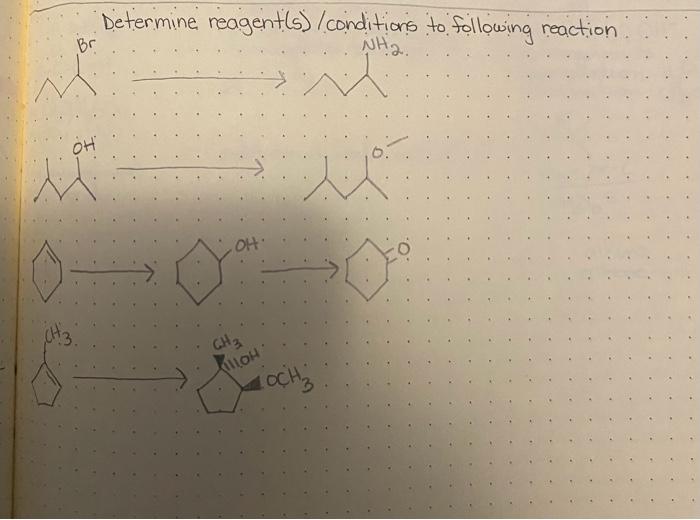 Determine reagent(s)/conditions to following reaction.
Br NH2
OH O
OH O
CH3 CH3
OH
OCH3